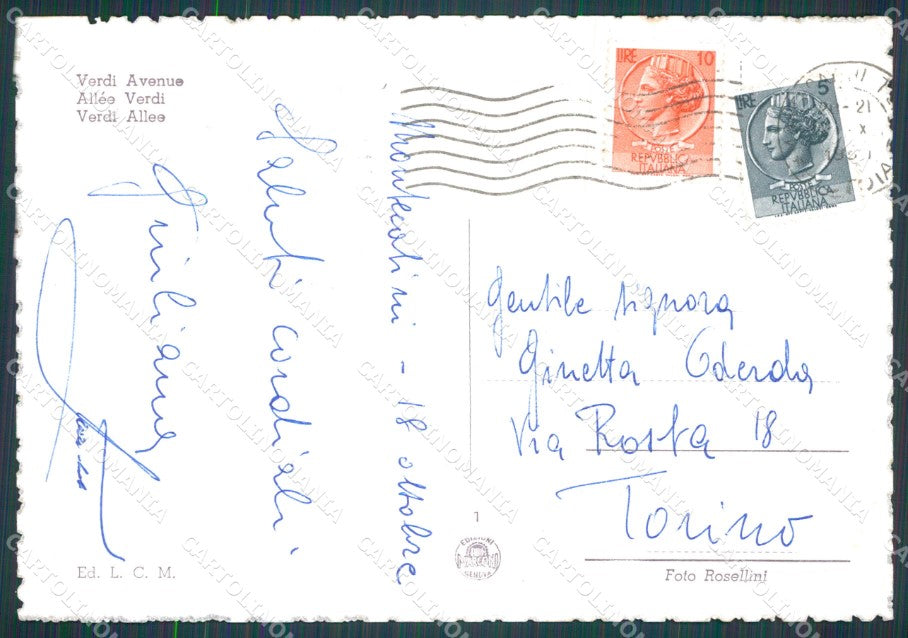 Verdi Avenue
Allée Verdi
Verdi Allee
Montecatini - 18 ottobre
Saluti cordiali
Giuliana
Ed. L. C. M.
LIRE 10
POSTE
REPVBBLICA
ITALIANA
LIRE 5
POSTE
REPVBBLICA
ITALIANA
21
X
Gentile signora
Ginetta Oderda
Via Rosta 18
Torino
1
EDIZIONI
GENOVA
Foto Rosellini
CARTOLINOMANIA